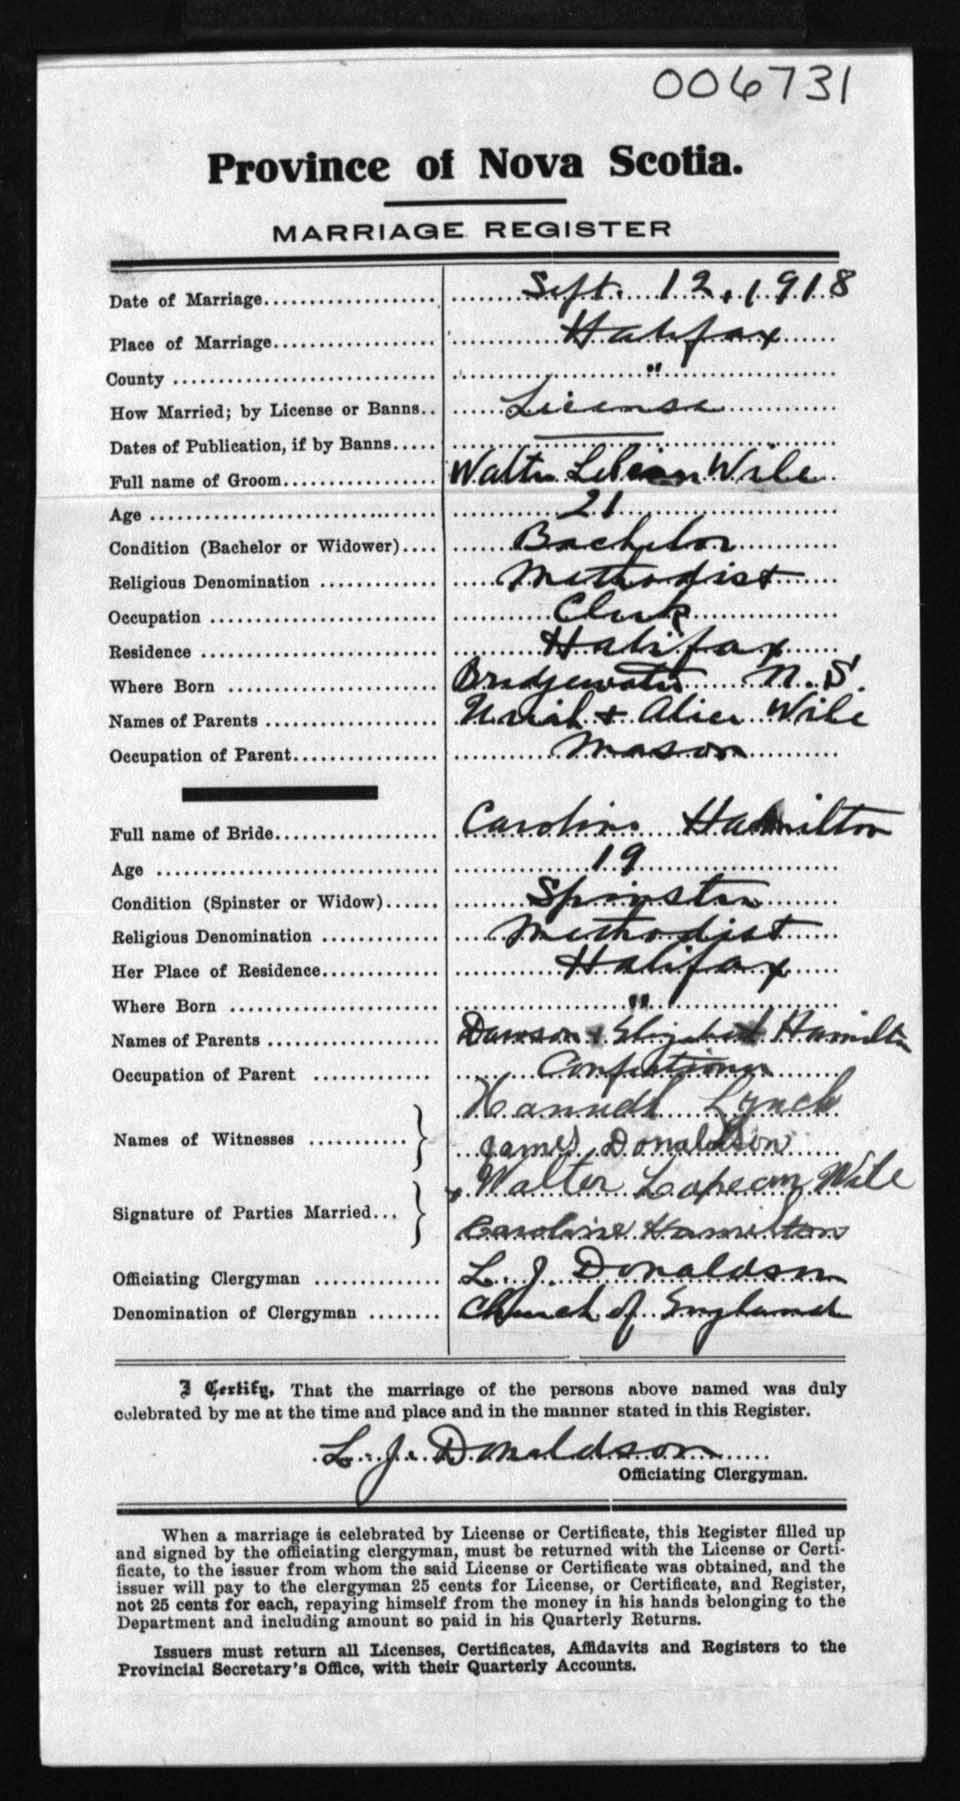 006731
Province of Nova Scotia.
MARRIAGE REGISTER
Date of Marriage Sept. 12, 1918
Place of Marriage Halifax
County "
How Married; by License or Banns License
Dates of Publication, if by Banns
Full name of Groom Walter Wile
Age 21
Condition (Bachelor or Widower) Bachelor
Religious Denomination Methodist
Occupation Clerk
Residence Halifax
Where Born Bridgewater N.S.
Names of Parents Uriah + Alice Wile
Occupation of Parent Mason
Full name of Bride Caroline Hamilton
Age 19
Condition (Spinster or Widow) Spinster
Religious Denomination Methodist
Her Place of Residence Halifax
Where Born "
Names of Parents Dawson + Elizabeth Hamilton
Occupation of Parent Confectioner
Names of Witnesses Lynch
James Donaldson
Signature of Parties Married Walter Wile
Caroline Hamilton
Officiating Clergyman L. J. Donaldson
Denomination of Clergyman Church of England
I Certify, That the marriage of the persons above named was duly
celebrated by me at the time and place and in the manner stated in this Register.
L. J. Donaldson
Officiating Clergyman.
When a marriage is celebrated by License or Certificate, this Register filled up
and signed by the officiating clergyman, must be returned with the License or Certi-
ficate, to the issuer from whom the said License or Certificate was obtained, and the
issuer will pay to the clergyman 25 cents for License, or Certificate, and Register,
not 25 cents for each, repaying himself from the money in his hands belonging to the
Department and including amount so paid in his Quarterly Returns.
Issuers must return all Licenses, Certificates, Affidavits and Registers to the
Provincial Secretary's Office, with their Quarterly Accounts.